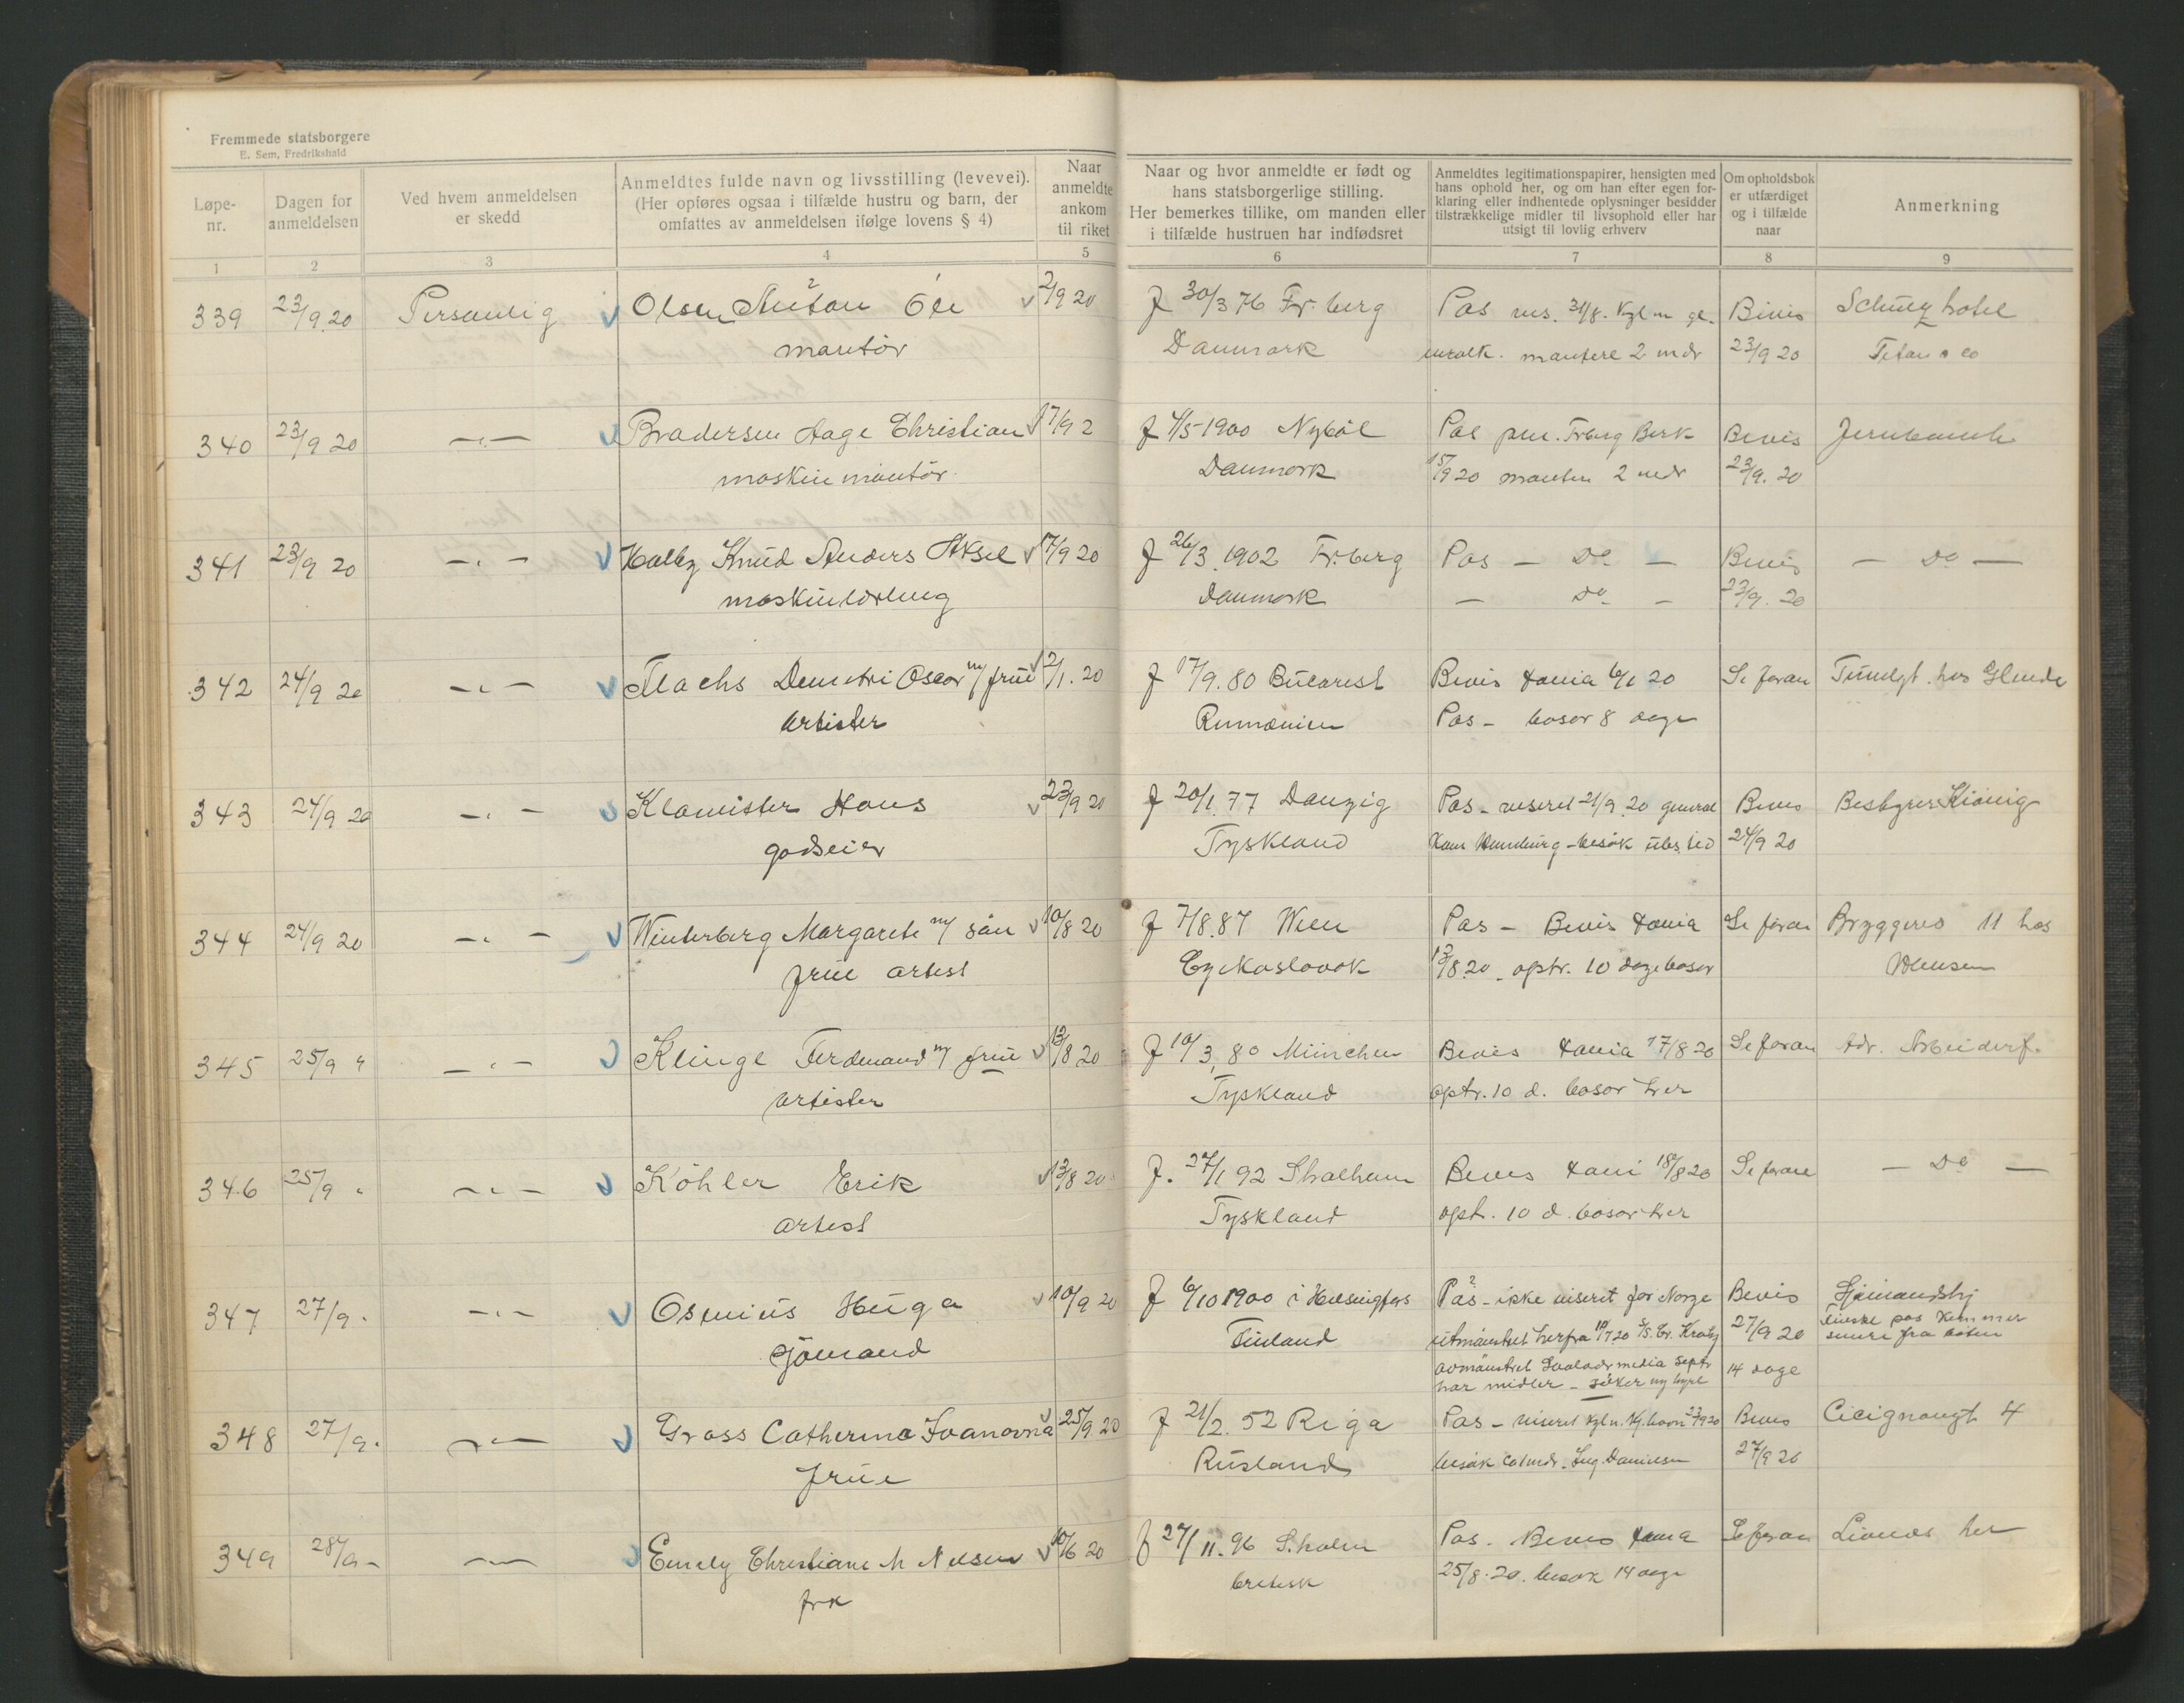 Fremmede statsborgere
E. Sem, Fredrikshald
Løpe-
nr.
Dagen for
anmeldelsen
Ved hvem anmeldelsen
er skedd
Anmeldtes fulde navn og livsstilling (levevei).
(Her opføres ogsaa i tilfælde hustru og barn, der
omfattes av anmeldelsen ifølge lovens § 4)
Naar
anmeldte
ankom
til riket
Naar og hvor anmeldte er født og
hans statsborgerlige stilling.
Her bemerkes tillike, om manden eller
i tilfælde hustruen har indfødsret
Anmeldtes legitimationspapirer, hensigten med
hans ophold her, og om han efter egen for-
klaring eller indhentede oplysninger besidder
tilstrækkelige midler til livsophold eller har
utsigt til lovlig erhverv
Om opholdsbok
er utfærdiget
og i tilfælde
naar
Anmerkning
1 2 3 4 5 6 7 8 9
339 23/9.20 Personlig Olsen Anton Ole 2/9 20 f 30/3 76 Fr.berg Pas 31/8. Bevis hotel
montör Danmark 2 mdr 23/9 20
340 23/9 20 -"- Brodersen Aage Christian 17/9 2 f 4/5 1900 Nyböl Pas Bevis
maskinmontör Danmark 15/9 20 2 mdr 23/9. 20
341 23/9 20 -"- Holby Knud Anders Aksel 17/9 20 f 26/3.1902 Fr.berg Pas - Do - Bevis - Do -
maskinlærling Danmark - Do - 23/9. 20
342 24/9 20 -"- Flachs Demetri Oscar m/ frue 2/1. 20 f 17/9.80 Bucarest Bevis Xania 6/1 20 Se foran hos
artister Rumænien Pas - basar 8 dage
343 24/9 20 -"- Klamister Hans 23/9 20 f 20/1.77 Danzig Pas - viseret 21/9.20 general Bevis
godseier Tyskland Hamburg - besök 24/9 20
344 24/9 20 -"- Winterberg Margarete m/ sön 10/8 20 f 7/8.87 Wien Pas - Bevis Xania Se foran 11 hos
frue artist Cyekoslovak 13/8.20 - optr. 10 dage basar
345 25/9 " -"- Klinge Ferdinand m/ frue 13/8 20 f 10/3.80 München Bevis Xania 17/8 20 Se foran Adr. Arbeiderf.
artister Tyskland optr. 10 d. basar her
346 25/9 " -"- Köhler Erik 13/8 20 f. 27/1 92 Bevis Xani 18/8 20 Se foran - Do -
artist Tyskland optr. 10 d. basar her
347 27/9. -"- Osenius Hugo 10/9 20 f 6/10 1900 i Helsingfors Pas - ikke viseret for Norge Bevis Sjömandshj
sjömand Finland utmönstret herfra 10/7 20 27/9 20 finske pas kommer
senere fra
avmönstret Septr 14 dage
har midler - söker ny hyre
348 27/9. -"- Gross Catherina Ivanovna 25/9.20 f 21/2. 52 Riga Pas - viseret Kj.havn 23/9 20 Bevis Cicignongt 4
frue Rusland besök 27/9 20
349 28/9 - -"- Emely Christiane M Nilsen 10/6 20 f 27/11.96 S.holm Pas. Bevis Xania Se foran her
frk britisk 25/8.20. besök 14 dage